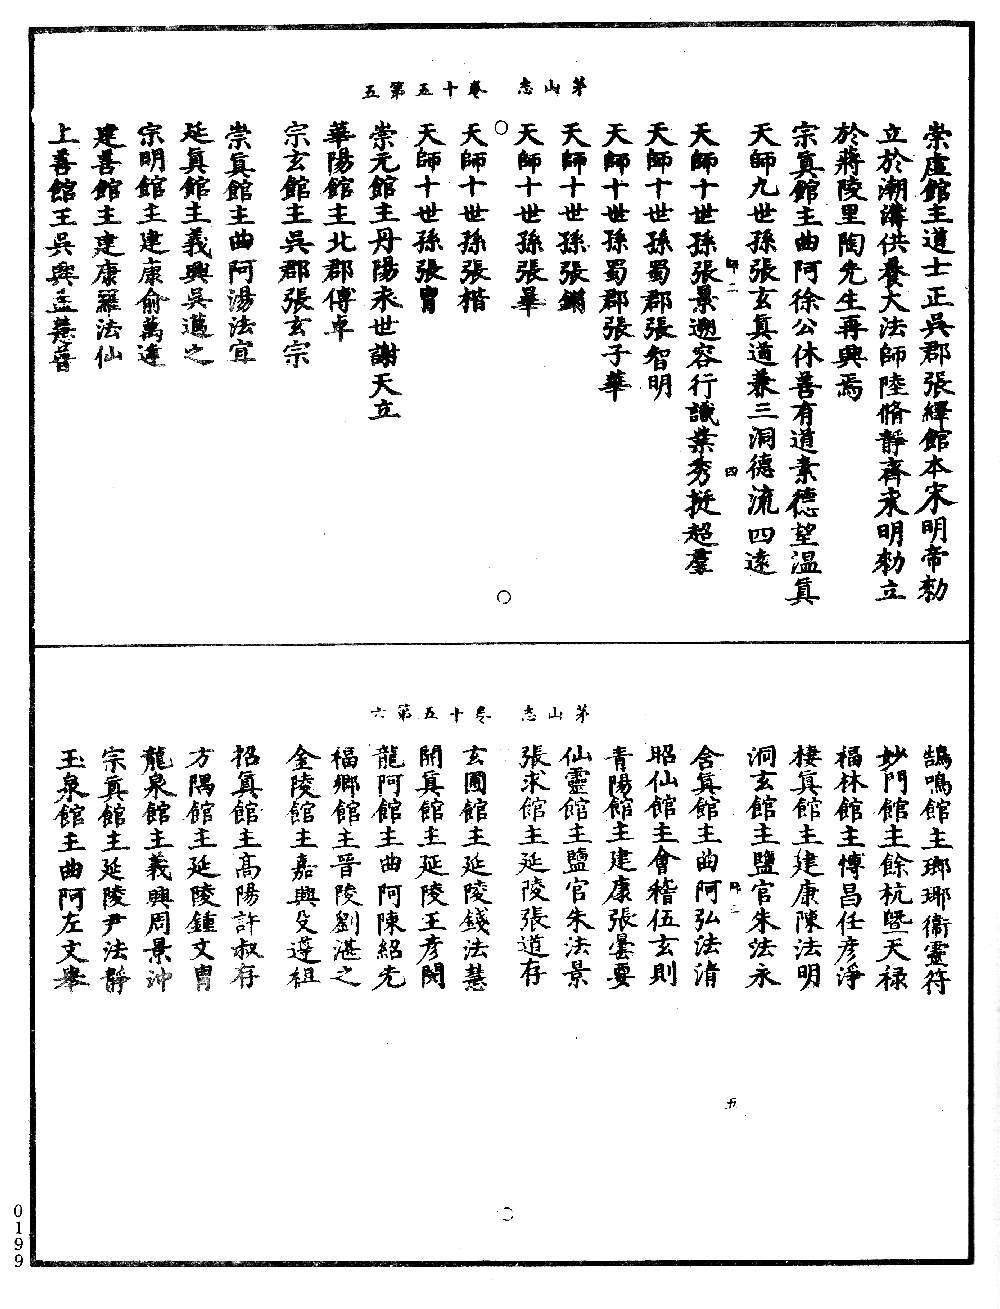 茅山志　卷十五第五
崇虛館主道士正吳郡張繹館本宋明帝勑
立於潮溝供養大法師陸脩靜齊末明勑立
於蔣陵里陶先生再興焉
宗真館主曲阿徐公休善有道素德望溫真
天師九世孫張玄真道兼三洞德流四遠
師二　四
天師十世孫張景遡容行識業秀挺超羣
天師十世孫蜀郡張智明
天師十世孫蜀郡張子華
天師十世孫張鏘
天師十世孫張畢
天師十世孫張楷
天師十世孫張冑
崇元館主丹陽朱世謝天立
華陽館主北郡傅卓
宗玄館主吳郡張玄宗
崇真館主曲阿湯法宣
延真館主義興吳邁之
宗明館主建康俞萬達
建善館主建康羅法仙
上善館王吳興孟慧善
茅山志　卷十五第六
鵠鳴館主瑯琊衞靈符
妙門館主餘杭暨天祿
福林館主博昌任彥淨
棲真館主建康陳法明
洞玄館主鹽官朱法永
師二　五
含真館主曲阿弘法清
昭仙館主會稽伍玄則
青陽館主建康張曇要
仙靈館主鹽官朱法景
張求館主延陵張道存
玄圃館主延陵錢法慧
開真館主延陵王彥閔
龍阿館主曲阿陳紹先
福鄉館主晉陵劉湛之
金陵館主嘉興殳遵祖
招真館主高陽許叔存
方隅館主延陵鍾文冑
龍泉館主義興周景沖
宗真館主延陵尹法靜
玉泉館主曲阿左文舉
0199